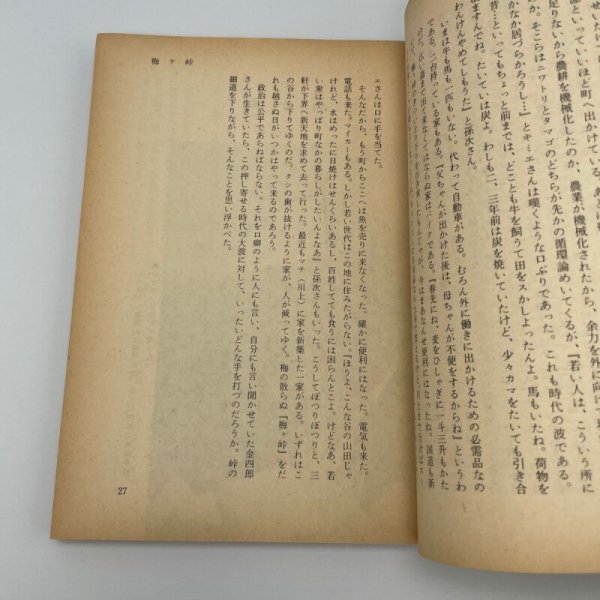 せいたけ
部といっていいほど町へ出かけている。
足りないから農耕を機械化したのか、農業が機械化されたから、余力を外に向けて
か。そこらはニワトリとタマゴのどちらが先かの循環論めいてくるが、『若い人は、こういう所に
かなか居づらかろうし…』とキミエさんは嘆くような口ぶりであった。これも時代の波である。
昔…といってもちょっと前までは、どことも牛を飼うて田をスかしよったんよ。馬もいたね。荷物を
積ますんでね。たいていは炭よ。わしも二、三年前は炭を焼いていたけど、少々カマをたいても引き合
わんけんやめてしもうた』と孫次さん。
いまは牛も馬も一匹もいない。代わって自動車がある。むろん外に働きに出かけるための必需品なの
である。二台持っている家もある。『父ちゃんが出かけた後は、母ちゃんが不便をするからね』というわ
バイクである。『春先にね、麦をひしゃぎに一斗三升もかた
今はまあなんせ便利にはなったね。国道も新
エさんは口に手を当てた。
そんなだから、もう町からここへは魚を売りに来なくなった。確かに便利にはなった。電気も来た。
電話も来た。マイカーもある。しかし若い世代はこの地に住みたがらない。『ほうよ、こんな谷の山田じゃ
けれど、水はめったに日焼けはせんくらいあるし、百姓してても食うには困らんとこよ。けどなあ、若
い衆はやっぱり町なかの暮らしがしたいんよなあ』と孫次さんもいった。こうしてぽつりぽつりと、三
軒が下界へ新天地を求めて去って行った。最近もマチ（川上）に家を新築した一家がある。いずれはこ
の谷から下りてゆくのだ。クシの歯が抜けるように家が、人が減ってゆく。梅の散らぬ『梅ヶ峠』をだ
れも越さぬ日がいつかはやって来るのであろう。
政治は公平であらねばならない。それを口癖のように人にも言い、自分にも言い聞かせていた金四郎
さんが生きていたら、この押し寄せる時代の大波に対して、いったいどんな手を打つのだろうか。峠の
細道を下りながら、そんなことを思い浮かべた。
梅ヶ峠
27